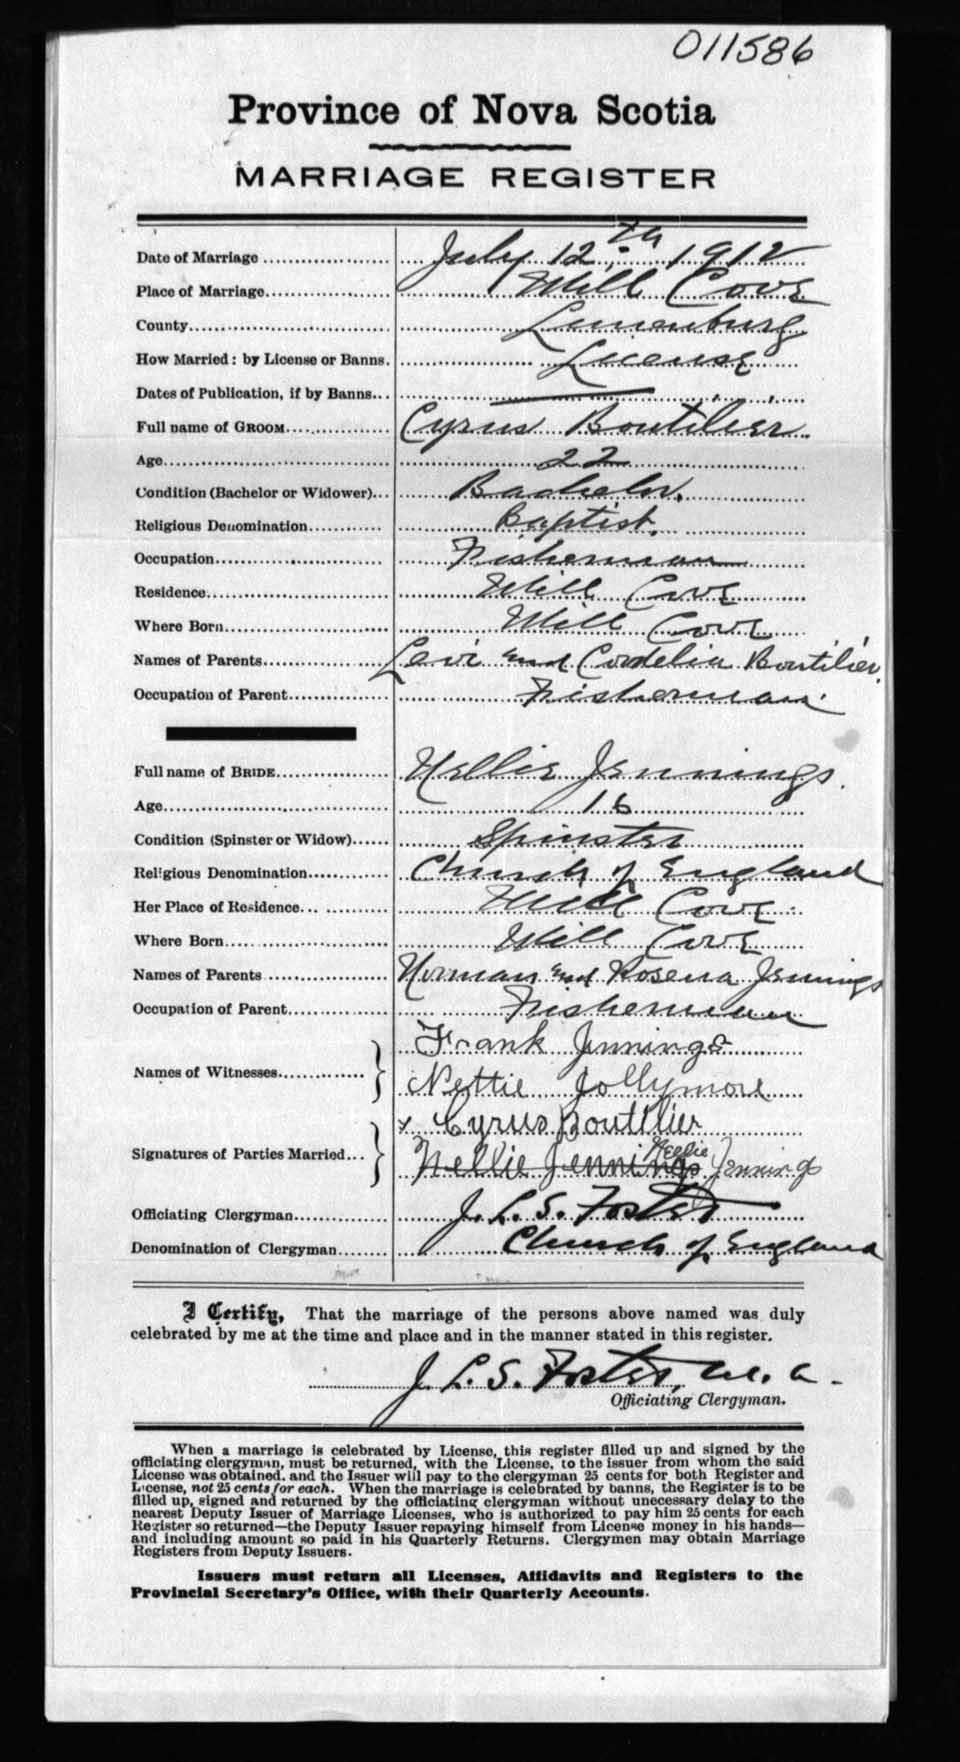 011586
Province of Nova Scotia
MARRIAGE REGISTER
Date of Marriage July 12th 1912
Place of Marriage Mill Cove
County Lunenburg
How Married: by License or Banns. License
Dates of Publication, if by Banns
Full name of GROOM Cyrus Boutilier
Age 22
Condition (Bachelor or Widower) Bachelor.
Religious Denomination Baptist.
Occupation Fisherman
Residence Mill Cove
Where Born Mill Cove
Names of Parents Levi and Cordelia Boutilier.
Occupation of Parent Fisherman.
Full name of BRIDE Nellie Jennings.
Age 16
Condition (Spinster or Widow) Spinster
Religious Denomination Church of England
Her Place of Residence Mill Cove
Where Born Mill Cove
Names of Parents Norman and Rosena Jennings
Occupation of Parent Fisherman
Frank Jennings
Names of Witnesses
Nettie Jollymore
x Cyrus Boutilier
Signatures of Parties Married
Nellie Jennings Nellie Jennings
Officiating Clergyman J. L. S. Foster
Denomination of Clergyman Church of England
I Certify, That the marriage of the persons above named was duly
celebrated by me at the time and place and in the manner stated in this register.
J. L. S. Foster, M. A.
Officiating Clergyman.
When a marriage is celebrated by License, this register filled up and signed by the
officiating clergyman, must be returned, with the License, to the issuer from whom the said
License was obtained, and the Issuer will pay to the clergyman 25 cents for both Register and
License, not 25 cents for each. When the marriage is celebrated by banns, the Register is to be
filled up, signed and returned by the officiating clergyman without unecessary delay to the
nearest Deputy Issuer of Marriage Licenses, who is authorized to pay him 25 cents for each
Register so returned—the Deputy Issuer repaying himself from License money in his hands—
and including amount so paid in his Quarterly Returns. Clergymen may obtain Marriage
Registers from Deputy Issuers.
Issuers must return all Licenses, Affidavits and Registers to the
Provincial Secretary's Office, with their Quarterly Accounts.